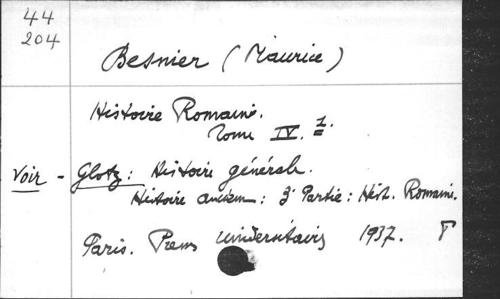 44
204
Besnier (Maurice)
Histoire Romaine.
Tome IV. 1.
Voir - Glotz: Histoire générale.
Histoire ancienne: 3e Partie: Hist. Romaine.
Paris. Presses Universitaires 1937.